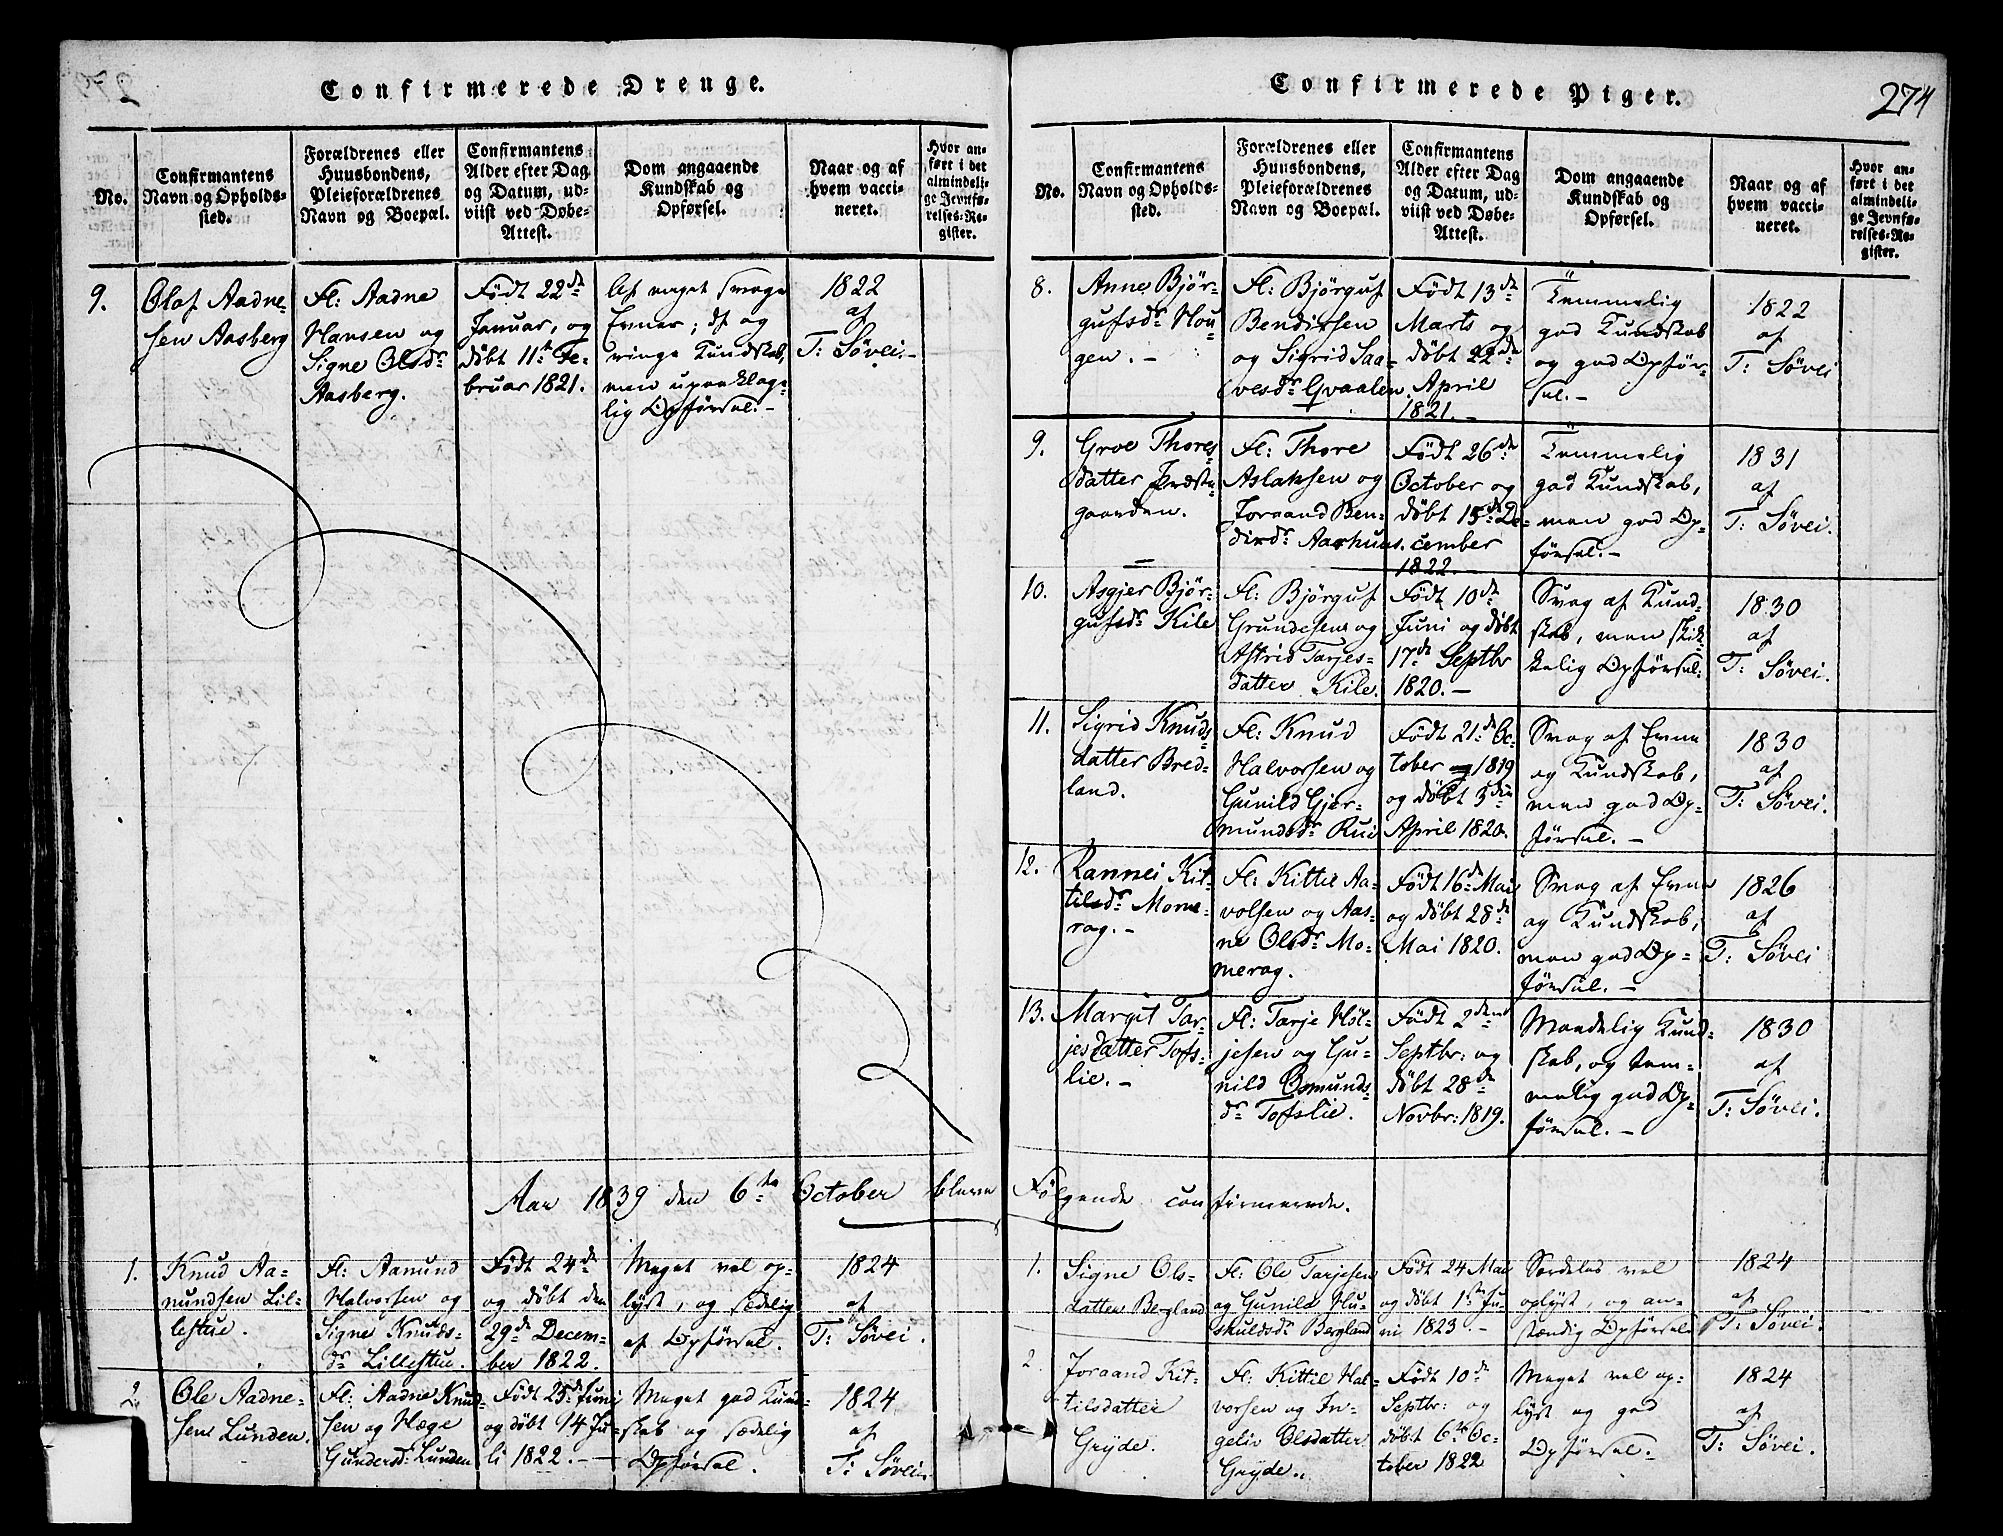 Confirmerede Drenge.
No.
Confirmantens
Navn og Opholds-
sted.
Forældrenes eller
Huusbondens,
Pleieforældrenes
Navn og Boepæl.
Confirmantens
Alder efter Dag
og Datum, ud-
viist ved Døbe-
Attest.
Dom angaaende
Kundskab og
Opførsel.
Naar og af
hvem vacci-
neret.
Hvor an-
ført i det
almindeli-
ge Jevnfø-
relses-Re-
gister.
9.
Olaf Aadne-
sen Aasberg
Fl: Aadne
Hansen og
Signe Olsdr
Aasberg.
Født 22de
Januar, og
døbt 11te Fe-
bruar 1821.
meget svage
Evner; og
ringe Kundskab,
men upaaklage-
lig Opførsel.-
1822
af
T: Søvei.-
Aar 1839 den 6te October bleve Følgende confirmerede.
1.
Knud Aa-
nundsen Lil-
lestue.
Fl: Aanund
Halvorsen og
Signe Knuds-
dr Lillestue.
Født 24de
og døbt den
29de Decem-
ber 1822.
Meget vel op-
lyst, og sædelig
af Opførsel.
1824
af
T: Søvei.
2.
Ole Aadne-
sen Lunden.
Fl: Aadne Knud-
sen og Hæge
Gundersdr Lunden
Født 25de Juni
og døbt 14 Ju-
li 1822.-
Meget god Kund-
skab og sædelig
Opførsel.
1824
af
T: Søvei.
Confirmerede Piger.
274
No.
Confirmantens
Navn og Opholds-
sted.
Forældrenes eller
Huusbondens,
Pleieforældrenes
Navn og Boepæl.
Confirmantens
Alder efter Dag
og Datum, ud-
viist ved Døbe-
Attest.
Dom angaaende
Kundskab og
Opførsel.
Naar og af
hvem vacci-
neret.
Hvor an-
ført i det
almindeli-
ge Jevnfø-
relses-Re-
gister.
8.
Anne Bjør-
gufsdr Hou-
gen.-
Fl: Bjørguf
Bendixsen
og Sigrid Saa-
vesdr Gvaalen.
Født 13de
Marts og
døbt 22de
April
1821.-
Temmelig
god Kundskab
og god Opfør-
sel.-
1822
af
T: Søvei
9.
Groe Thores-
datter Præste-
gaarden.
Fl: Thore
Aslaksen og
Joraand Ben-
dixdr Aarhuus.
Født 26de
October og
døbt 15de De-
cember
1822.
Temmelig
god Kundskab,
men god Op-
førsel.-
1831
af
T: Søvei.
10.
Asgjer Bjør-
gufsdr Kile
Fl: Bjørguf
Grundesen og
Astrid Tarjes-
datter Kile.
Født 10de
Juni og døbt
17de Septbr
1820.-
Svag af Kund-
skab, men skik-
kelig Opførsel.
1830
af
T: Søvei.
11.
Sigrid Knuds-
datter Bred-
land.
Fl: Knud
Halvorsen og
Gunild Gjer-
mundsdr Rui
Født 21de Oc-
tober 1819
og døbt 3die
April 1820.
Svag af Evne
og Kundskab,
men god Op-
førsel.-
1830
af
T: Søvei.
12.
Rannei Kit-
tilsdr Mome-
rag.-
Fl: Kittil Aa-
volsen og Aas-
ne Olsdr Mo-
merag.
Født 16de Mai
og døbt 28de
Mai 1820.
Svag af Evne
og Kundskab,
men god Op-
førsel.-
1826
af
T: Søvei
13.
Margit Tar-
jesdatter Tofs-
lie.-
Fl: Tarje Høl-
jesen og Gu-
nild Osmunds-
dr Tofslie.
Født 2den
Septbr: og
døbt 28de
Novbr: 1819.
Maadelig Kund-
skab, og tem-
melig god Op-
førsel.-
1830
af
T: Søvei.
1.
Signe Ols-
datter Bergland
Fl: Ole Tarjesen
og Gunild Hu-
skuldsdr Bergland
Født 24 Mai
og døbt 1ste Ju-
ni 1823.-
Særdeles vel
oplyst, og an-
stændig Opførsel
1824
af
T: Søvei.
2.
Joraand Kit-
tilsdatter
Gryde.
Fl: Kittil Hal-
vorsen og In-
geliv Olsdatter
Gryde.
Født 10de
Septbr: og
døbt 6te Oc-
tober 1822
Meget vel op-
lyst og god
Opførsel.-
1824
af
T: Søvei.